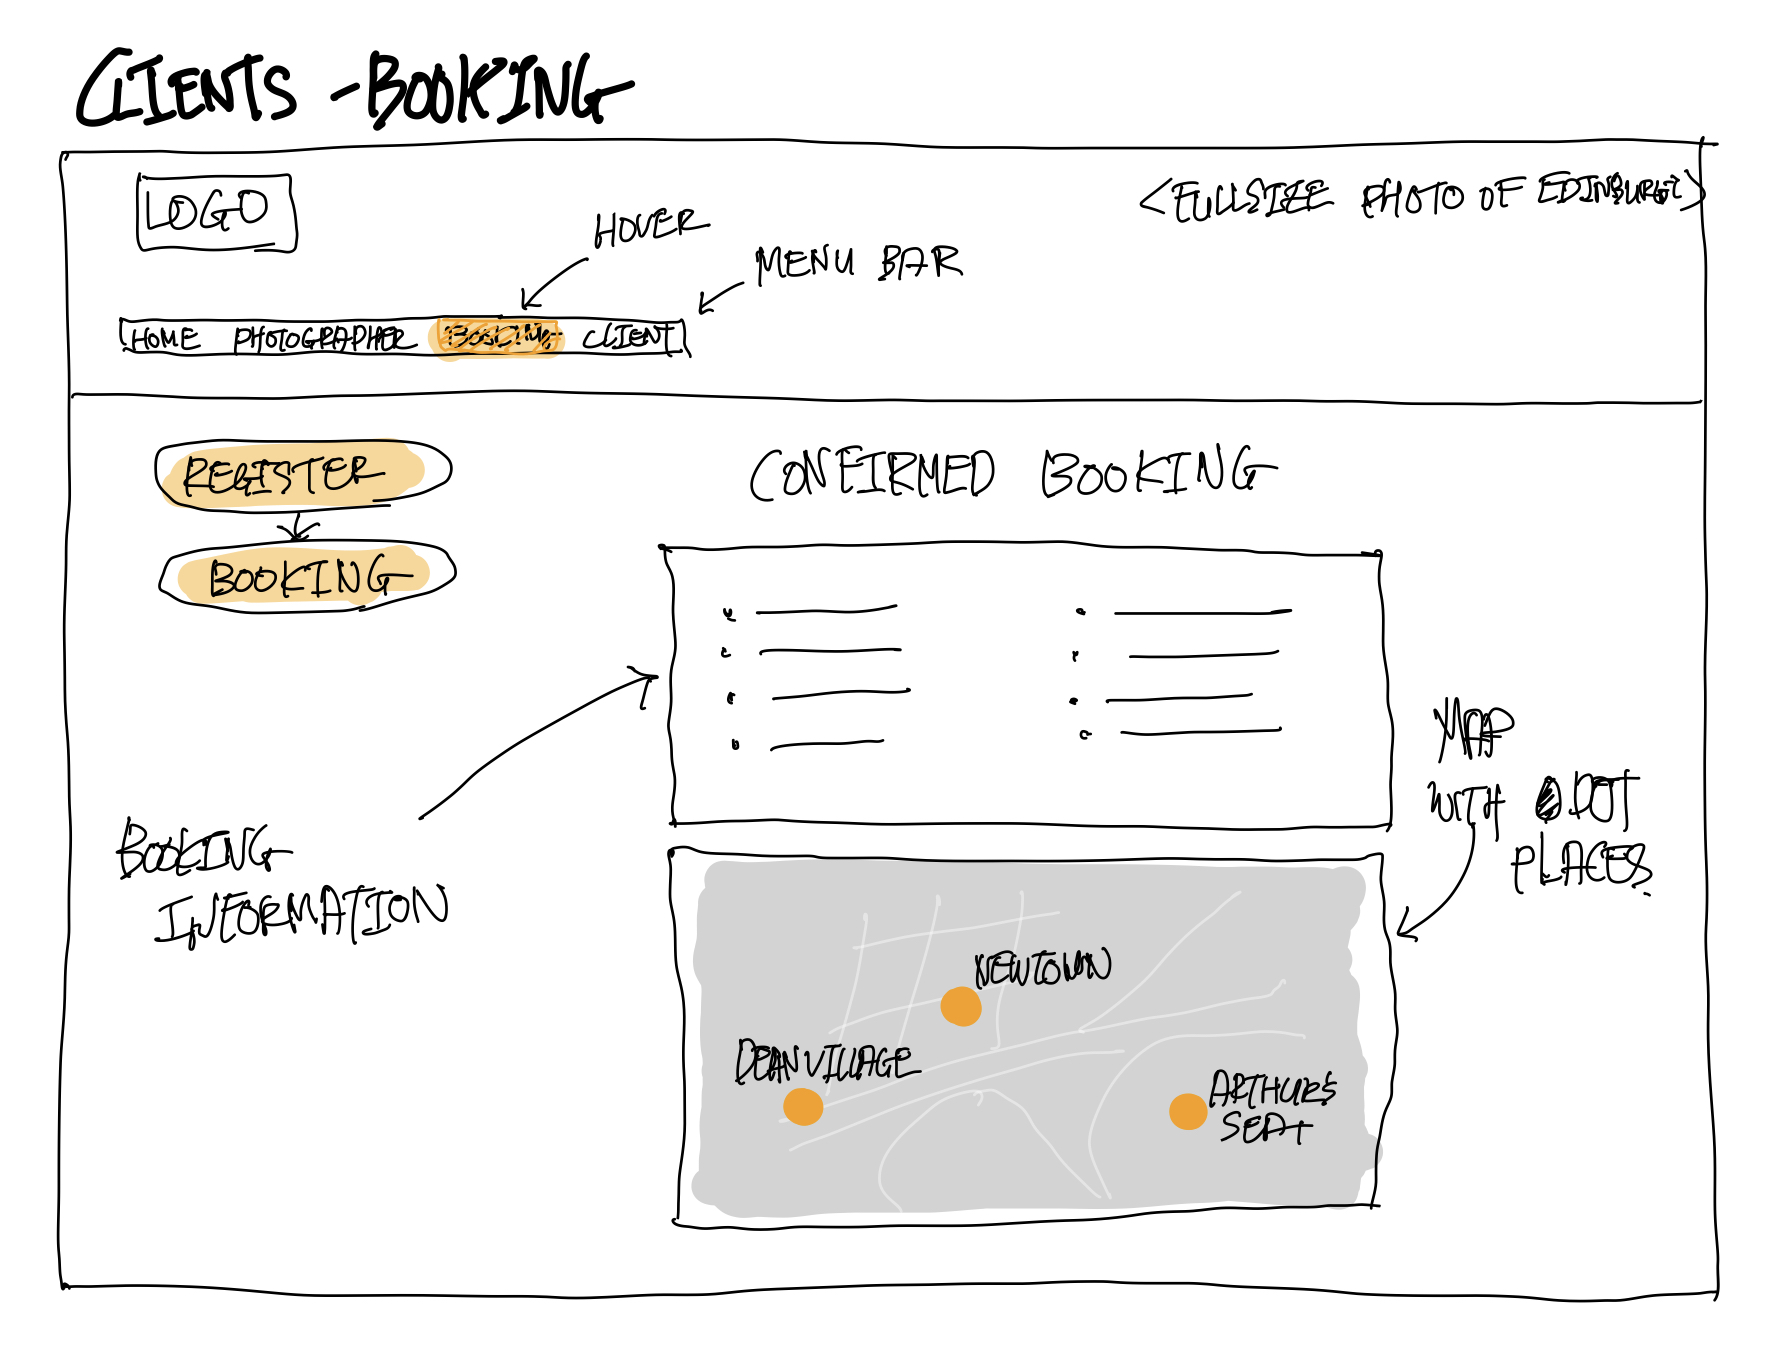 CLIENTS - BOOKING
LOGO
<FULLSIZE PHOTO OF EDINBURGH>
HOVER
MENU BAR
HOME PHOTOGRAPHER BOOKING CLIENT
REGISTER
BOOKING
CONFIRMED BOOKING
BOOKING
INFORMATION
MAP
WITH DOT
PLACES
NEWTOWN
DEAN VILLAGE
ARTHURS
SEAT